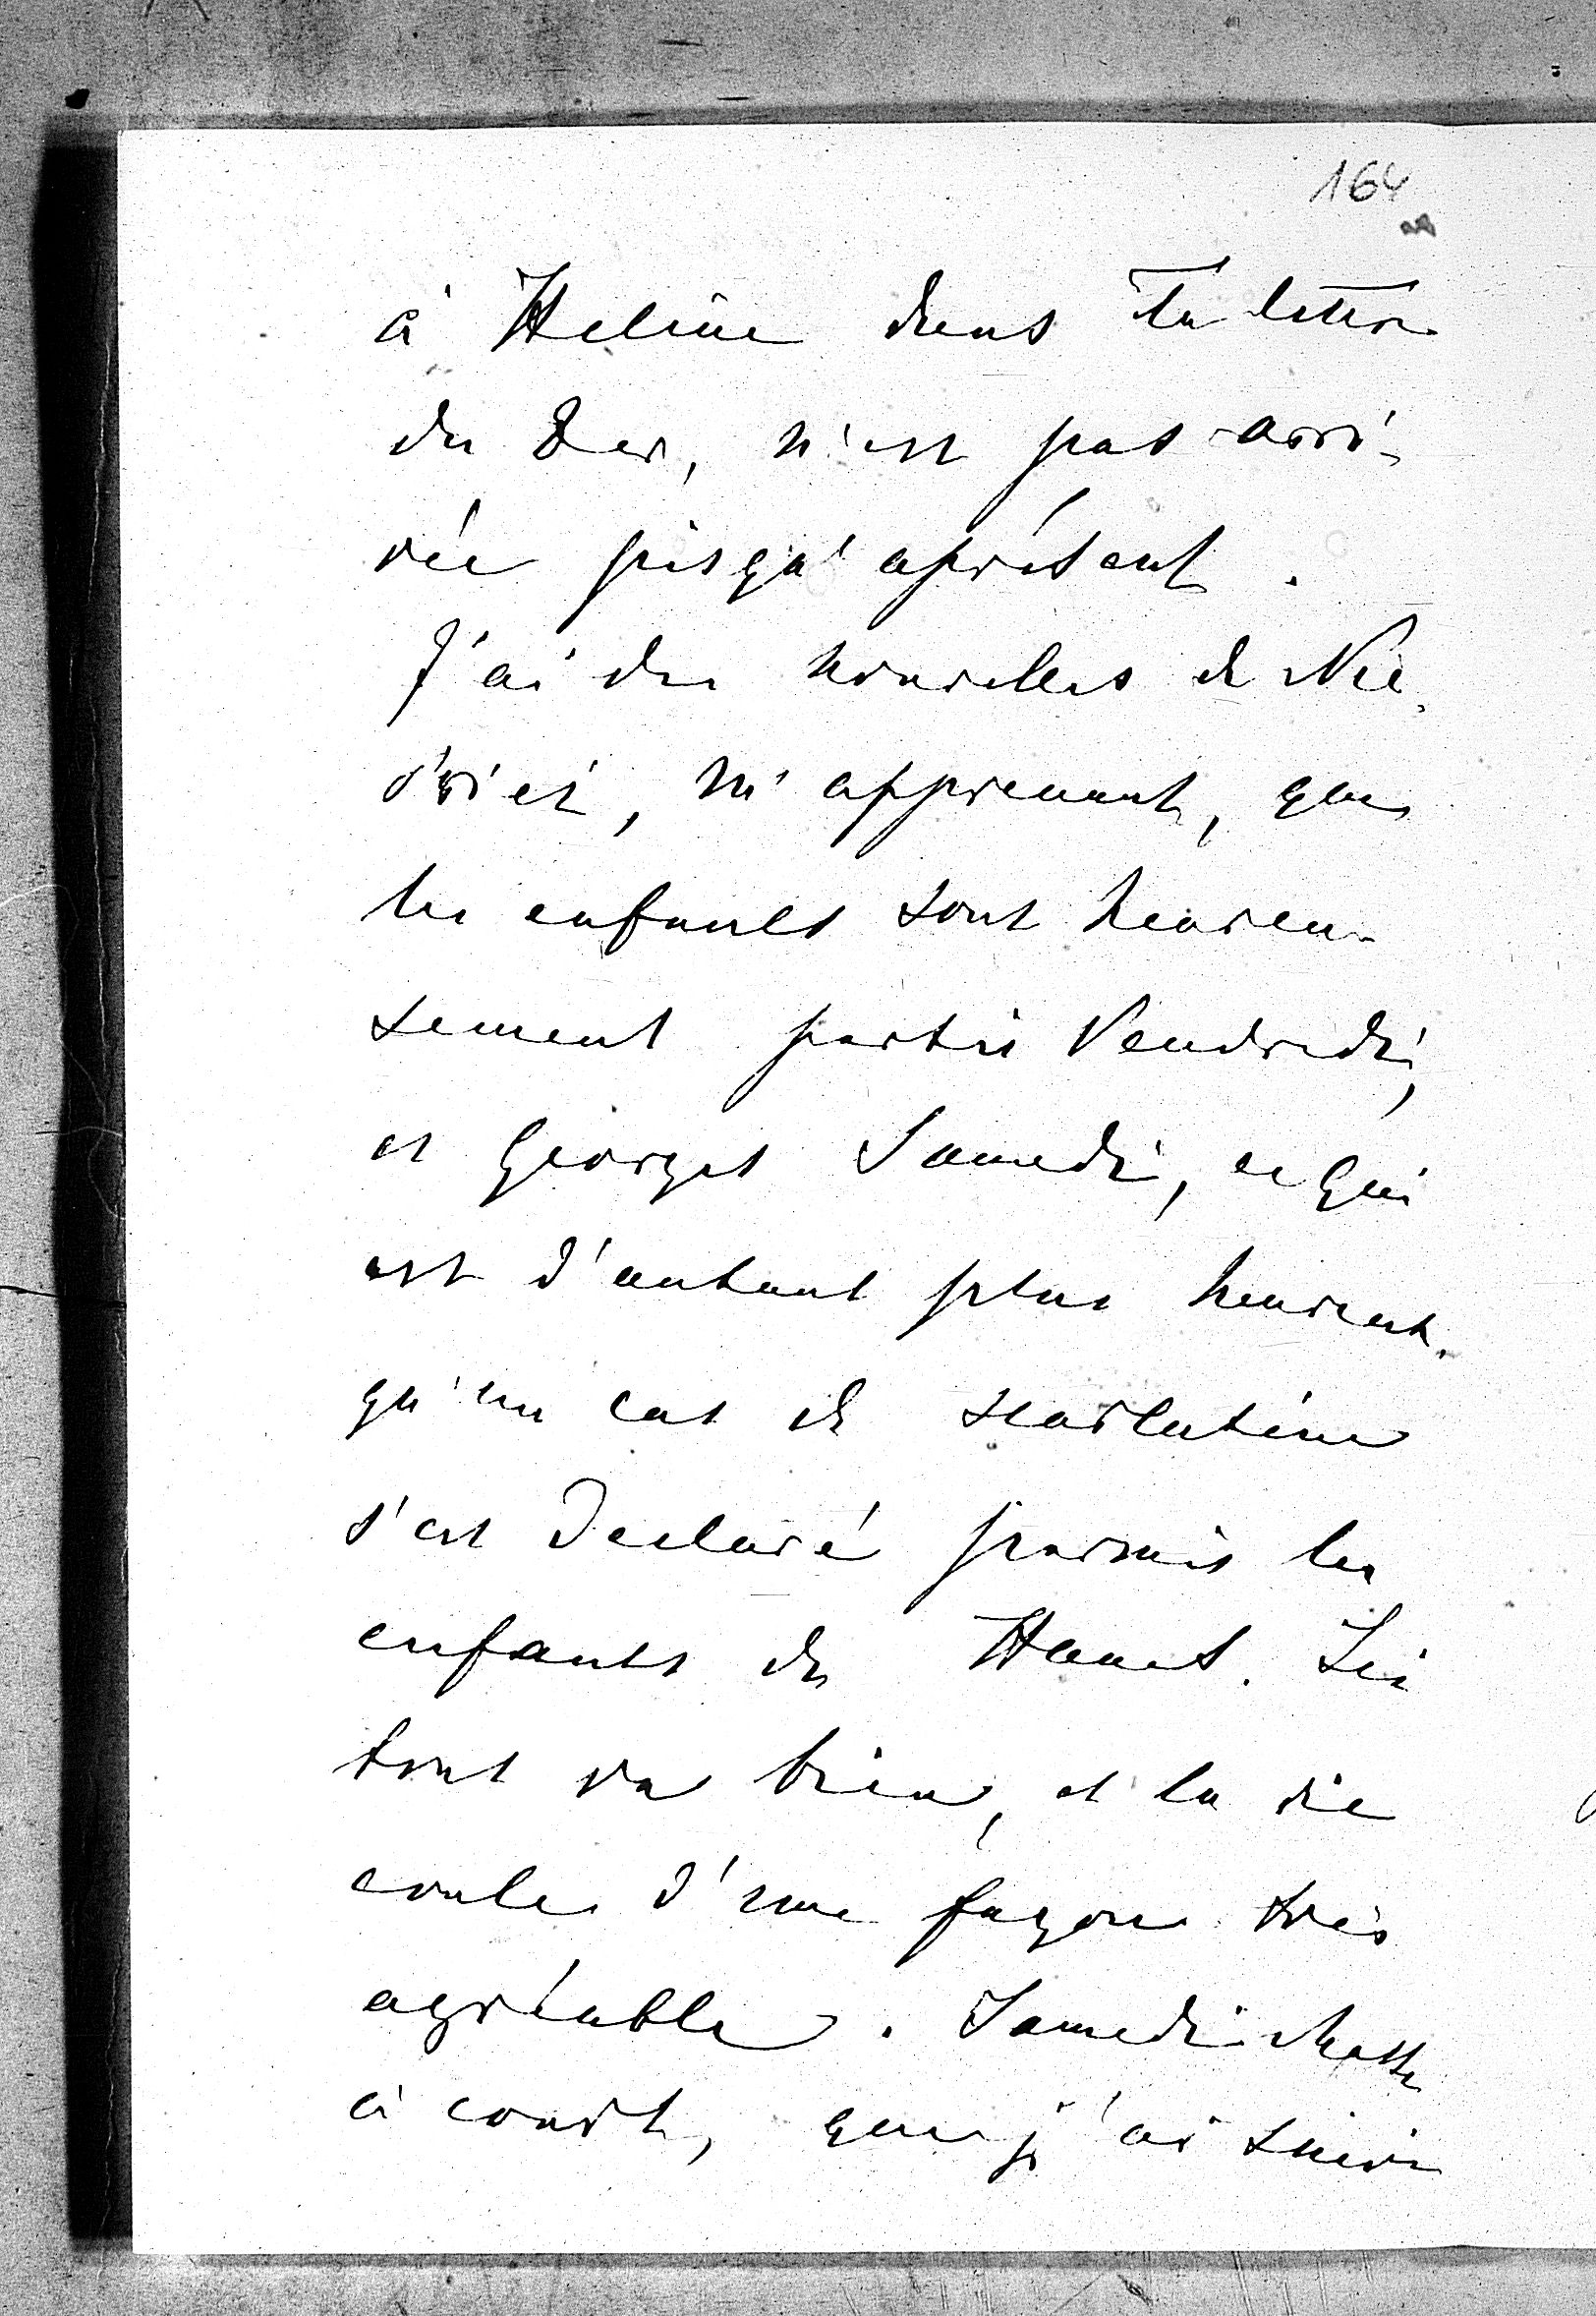 164
à Helène dans Ta lettre
du 8 er, n'est pas arri-
vée jusqu'aprésent.
J'ai des nouvelles de
m'apprenant, que
les enfants sont heureu-
sement partis Vendredi,
et Georges Samedi, ce qui
est d'autant plus heureux.
qu'un cas de scarlatine
s'est declaré parmis les
enfants de Hanet. Ici
tout va bien, et la vie
coule d'une façon très
agréable. Samedi chasse
à court, que j'ai suivi